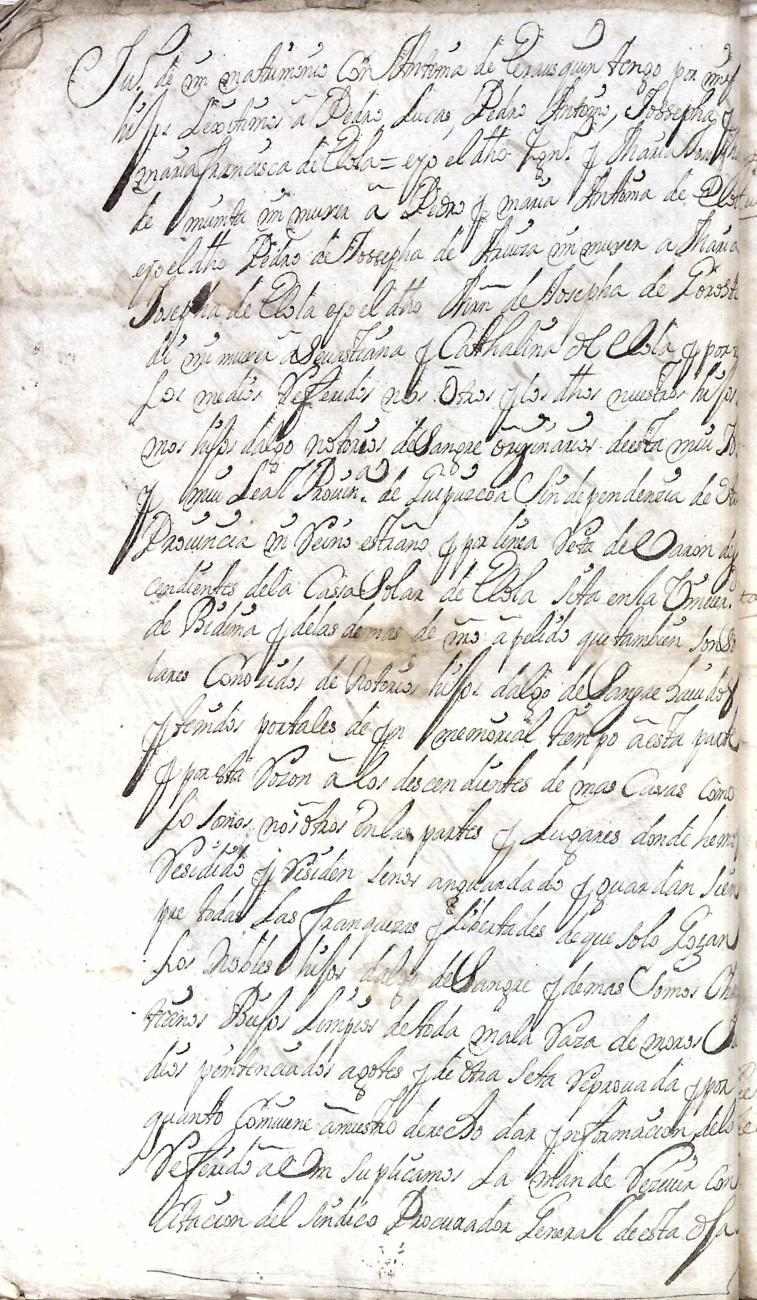 Jul. de mi matrimonio con Antonia de Verasquin tengo por mis
hijos Lexitimos â Pedro Lucas, Pedro Antonio, Jossepha, y
maria francisca de Elola = eyo el dho Ygn.º y Maria
de mi muxer â Pedro y maria Antonia de
eyo el dho Pedro de Jossepha de mi muxer a Maria
Josepha de Elola eyo el dho Mrñ de Josepha de
de mi muxer â Sevastiana y Cathalina de Elola y por
Los medios Referidos nos Otros y los dhos nuestros hijos
mos hijos dalgo notorios de Sangre originarios de esta mui
y mui Leal Provin.ª de Guipuzcoa Sin dependencia de
Provincia ni Reino estraño y por linea Reta de Varon des
cendientes dela Cassa Solar de Elola sita en la
de Bidania y delas demas de nro apelido que tambien son So
lares Conosidos de Notorios hijos dalgo de Sangre havidos
y tenidos por tales de yn memorial tiempo â esta parte
y por esta Rozon â los descendientes de mas Casas como
Lo somos nosotros en las partes y Lugares donde hemos
Residido y Residen senos an guardado y guardan Siem
pre todas Las franquezas y libertades de que solo Gozan
Los Nobles hijos dalgo de Sangre y demas Somos
tianos Biejos Limpios de toda mala Raza de moros
dios penitenciados agotes y de otra Seta Reprovada y por
quanto Comviene â nuestro derecho dar ynformacion delo
Referido â Vm suplicamos La mande Recivir con
Citacion del sindico Procurador General de esta dha